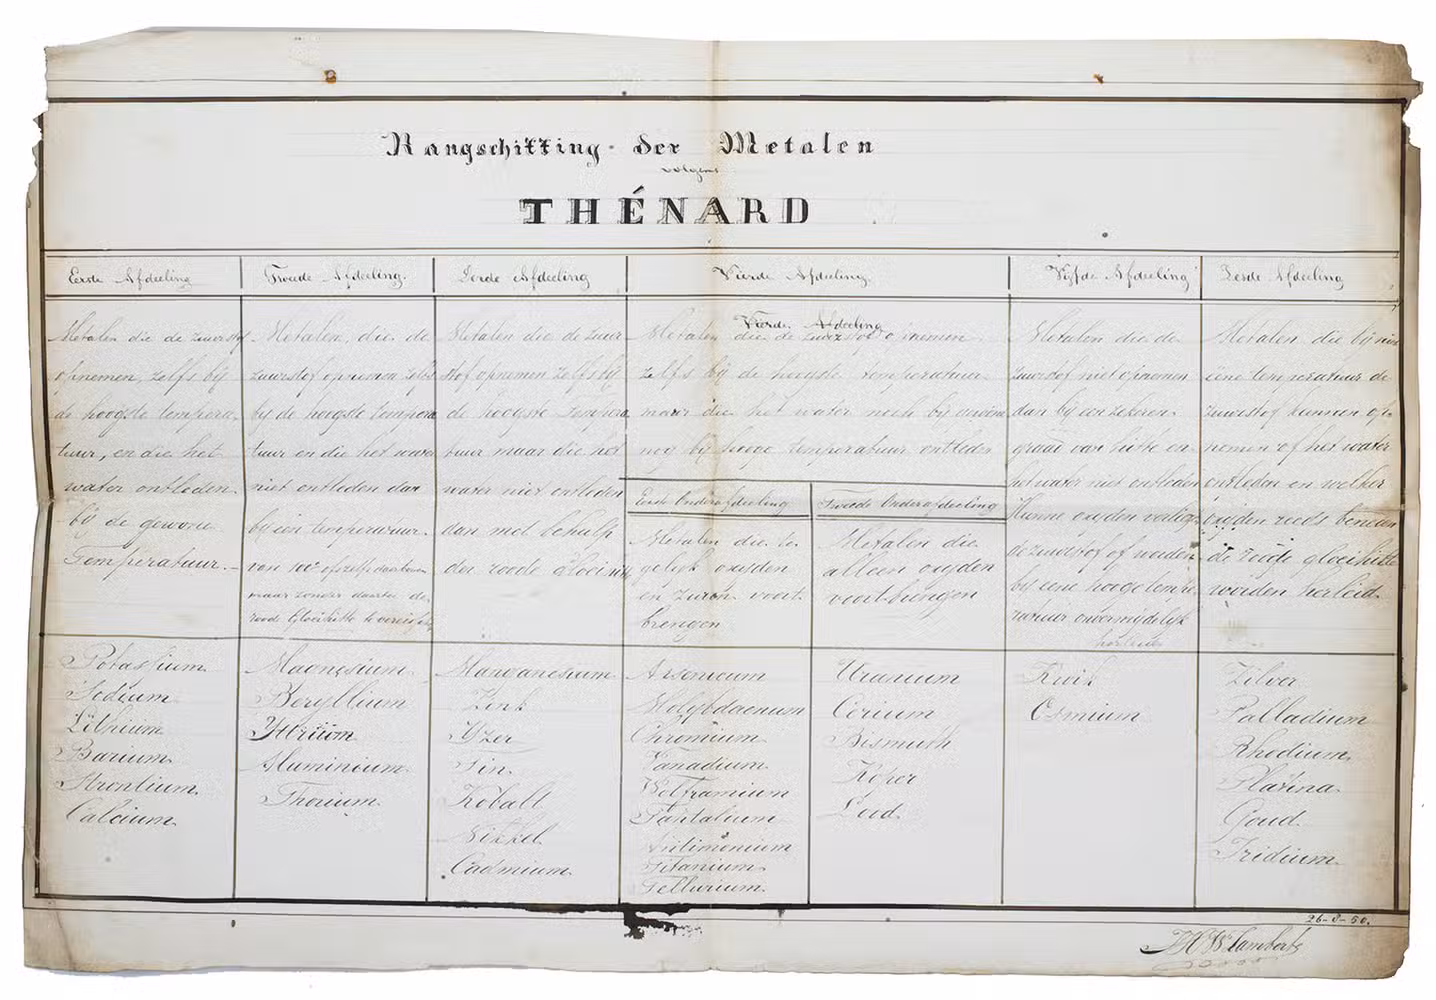 Rangschikking der Metalen
volgens
THÉNARD
Eerste Afdeeling
Tweede Afdeeling.
Derde Afdeeling
Vierde Afdeeling.
Vijfde Afdeeling
Zesde Afdeeling
Metalen die de zuurstof
opnemen, zelfs bij
de hoogste tempera-
tuur, en die het
water ontleden.
bij de gewone
Temperatuur.
Metalen, die de
zuurstof opnemen zelfs
bij de hoogste tempera
tuur en die het water
niet ontleden dan
bij een temperatuur.
van 100° of zelfs daarboven
maar zonder daartoe de
roode gloeihitte te vereischen
Metalen die de zuur
stof opnemen zelfs bij
de hoogste tempera
tuur maar die het
water niet ontleden
dan met behulp
der roode
Vierde Afdeeling
Metalen die de zuurstof opnemen
zelfs bij de hoogste temperatuur
maar die het water noch bij gewone
nog bij hooge temperatuur ontleden
Eerste Onderafdeeling
Metalen die te
gelijk oxyden
en zuren voort
brengen
Tweede Onderafdeeling
Metalen die
alleen oxyden
voortbrengen
Metalen die de
zuurstof niet opnemen
dan bij een zekeren
graad van hitte en
het water niet ontleden
Hunne oxyden
de zuurstof of worden
bij eene hooge tempe
ratuur onvermijdelijk
herleid
Metalen die bij
eene temperatuur de
zuurstof kunnen op-
nemen of het water
ontleden en welker
oxyden reeds beneden
de roode gloeihitte
worden herleid.
Potassium.
Sodium.
Lithium.
Barium.
Strontium.
Calcium.
Magnesium.
Beryllium
Yttrium.
Aluminium.
Thorium.
Manganesium
Zink
Yzer
Tin.
Kobalt
Nikkel
Cadmium.
Arsenicum
Molybdaenum
Chromium.
Vanadium.
Wolframium
Tantalium.
Antimonium
Titanium.
Tellurium.
Uranium
Cerium.
Bismuth
Koper
Lood.
Kwik
Osmium
Zilver
Palladium
Rhodium.
Platina.
Goud.
Iridium.
26-8-50.
J H W Lamberts